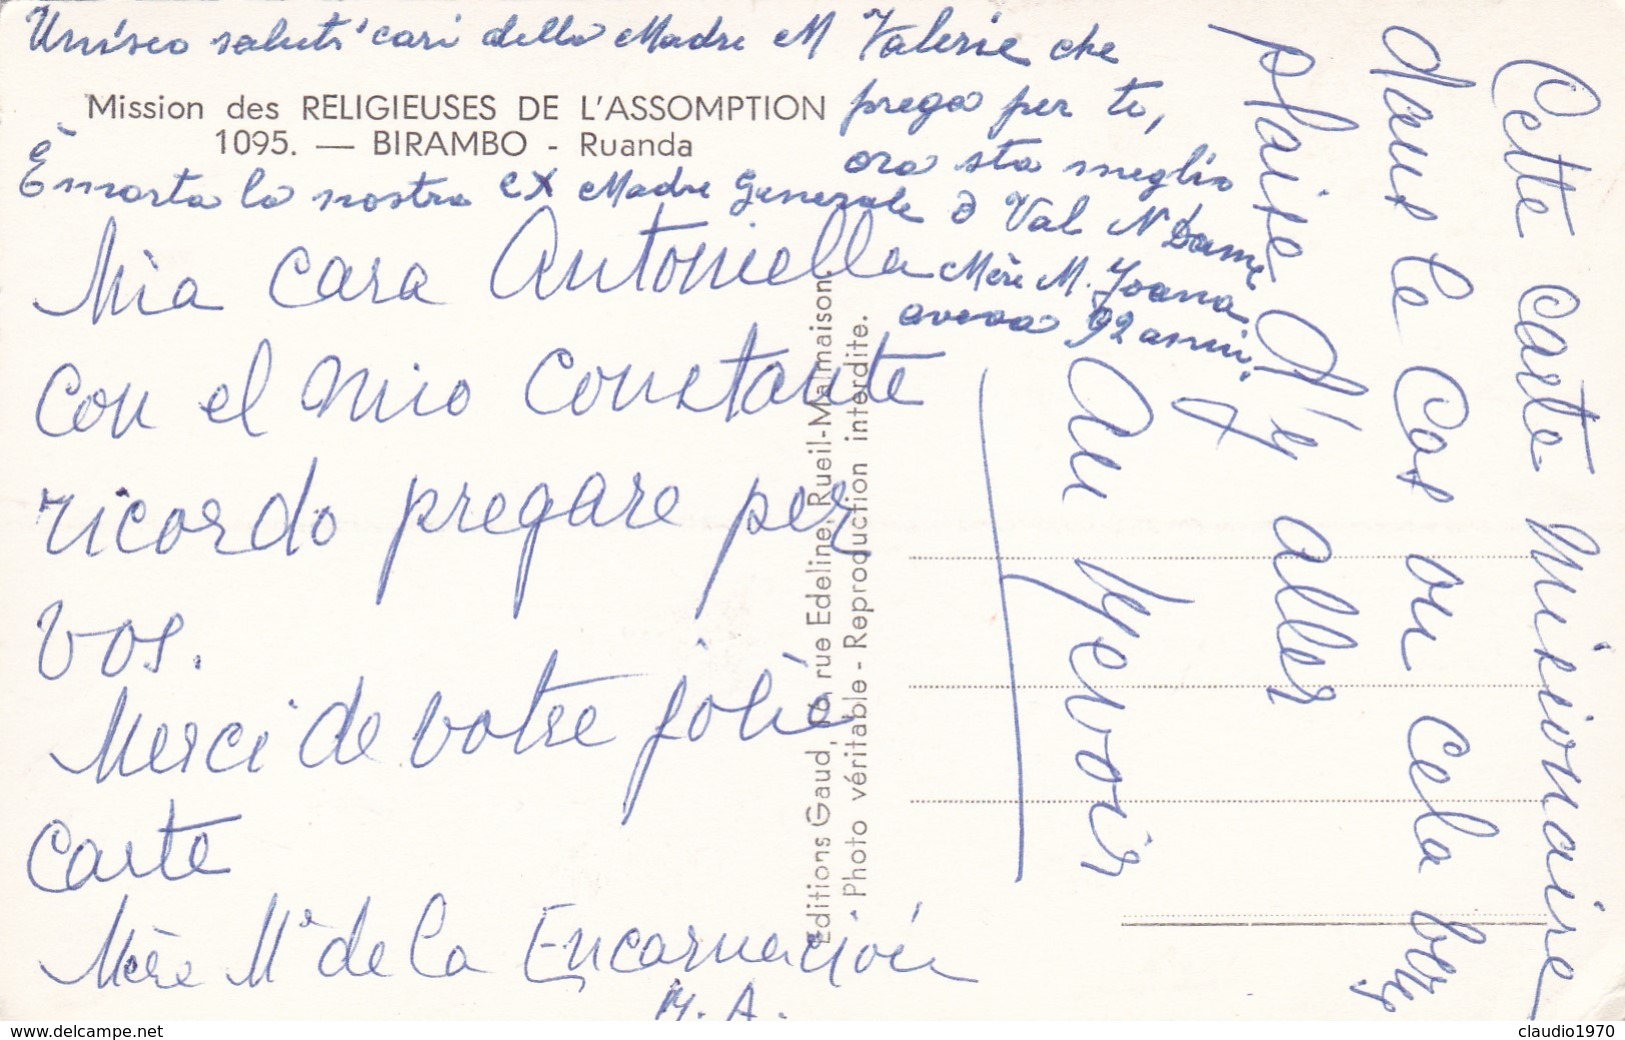 Unisco saluti cari della Madre M Valerie che
prega per te,
ora sta meglio
Mission des RELIGIEUSES DE L'ASSOMPTION
1095. — BIRAMBO - Ruanda
È morta la nostra ex Madre Generale a Val N Dame
Mère M. Joana
aveva 92 anni.
Mia cara Antoniella
con el mio constante
ricordo pregare per
vos.
Merci de votre jolie
carte
Mère Mª de la Encarnación
M. A.
Editions Gaud, rue Edeline, Rueil-Malmaison.
Photo véritable - Reproduction interdite.
Cette carte Missionaire
dans le cas ou cela
plaise d'y aller
Au revoir
www.delcampe.net
claudio1970